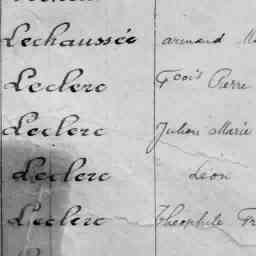 Lechaussée armand
Leclerc Fçois Pierre
Leclerc Julien Marie
Leclerc Léon
Leclerc Théophile